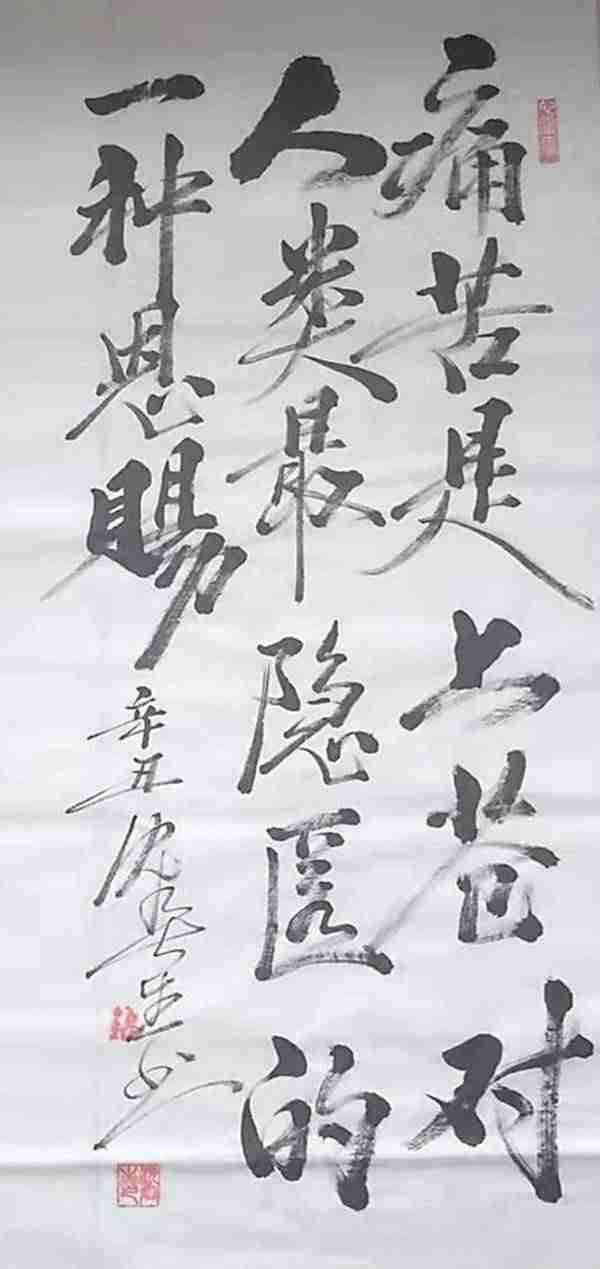 痛苦是上苍对
人类最隐匿的
一种恩赐
辛丑沈生书